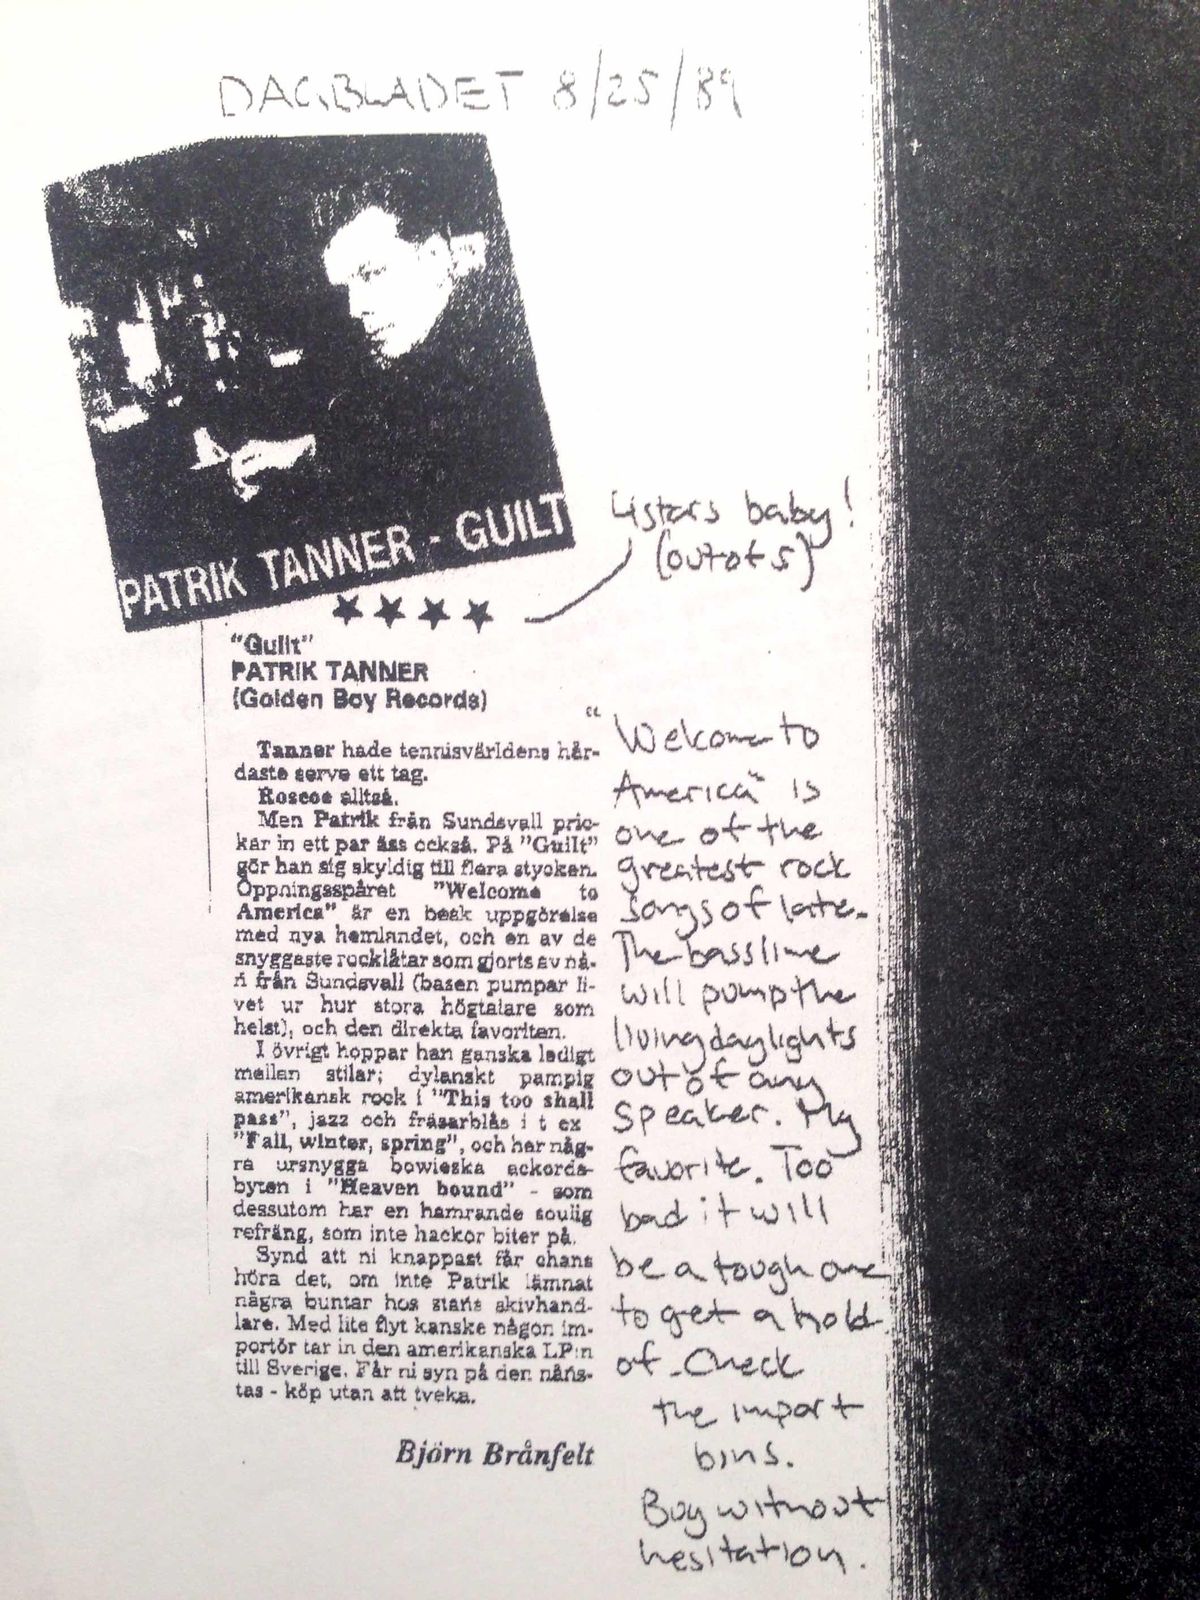 DAGBLADET 8/25/89
PATRIK TANNER - GUILT
4 stars baby!
(out of 5)
"Guilt"
PATRIK TANNER
(Golden Boy Records)
Tanner hade tennisvärldens hår-
daste serve ett tag.
Roscoe alltså.
Men Patrik från Sundsvall pric-
kar in ett par äss också. På "Guilt"
gör han sig skyldig till flera stycken.
Öppningsspåret "Welcome to
America" är en besk uppgörelse
med nya hemlandet, och en av de
snyggaste rocklåtar som gjorts av nå-
n från Sundsvall (basen pumpar li-
vet ur hur stora högtalare som
helst), och den direkta favoriten.
I övrigt hoppar han ganska ledigt
mellan stilar; dylanskt pampig
amerikansk rock i "This too shall
pass", jazz och fräsarblås i t ex
"Fall, winter, spring", och har någ-
ra ursnygga bowieska ackords-
byten i "Heaven bound" - som
dessutom har en hamrande soulig
refräng, som inte hackor biter på.
Synd att ni knappast får chans
höra det, om inte Patrik lämnat
några buntar hos stans skivhand-
lare. Med lite flyt kanske någon im-
portör tar in den amerikanska LP:n
till Sverige. Får ni syn på den nåns-
tas - köp utan att tveka.
Björn Brånfelt
"Welcome to
America" is
one of the
greatest rock
songs of late.
The bassline
will pump the
living daylights
out of any
speaker. My
favorite. Too
bad it will
be a tough one
to get a hold
of. Check
the import
bins.
Buy without
hesitation.